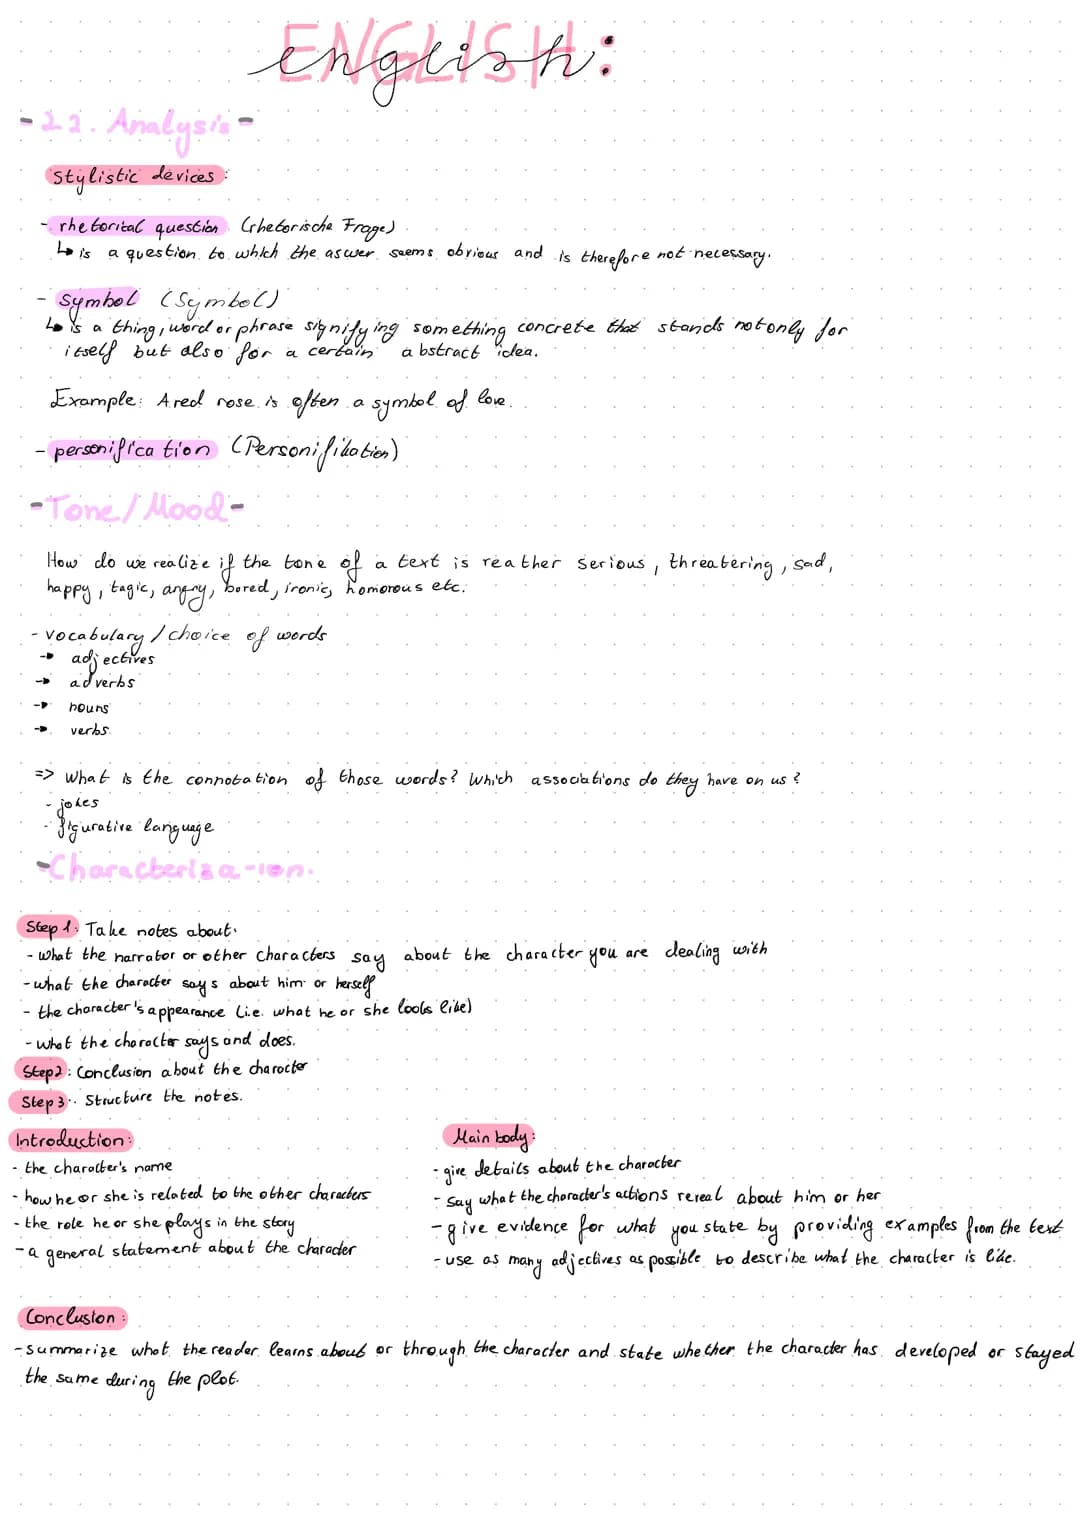 ENGLISH:
english:
- 2.2. Analysis -
stylistic devices:
- rhetorical question (rhetorische Frage)
↳ is a question to which the aswer seems obvious and is therefore not necessary.
- symbol (Symbol)
↳ is a thing, word or phrase signifying something concrete that stands not only for
itself but also for a certain abstract idea.
Example: A red rose is often a symbol of love.
- personification (Personifikation)
- Tone/Mood -
How do we realize if the tone of a text is reather serious, threatering, sad,
happy, tagic, angry, bored, ironic, homorous etc.
- vocabulary / choice of words
→ adjectives
→ adverbs
→ nouns
→ verbs
=> What is the connotation of those words? Which associations do they have on us?
- jokes
- figurative language
- Characteriza-ion.
Step 1: Take notes about:
- what the narrator or other characters say about the character you are dealing with
- what the character says about him or herself
- the character's appearance (i.e. what he or she looks like)
- what the character says and does.
Step 2: Conclusion about the character
Step 3: Structure the notes.
Introduction:
- the character's name
- how he or she is related to the other characters
- the role he or she plays in the story
- a general statement about the character
Main body:
- give details about the character
- say what the character's actions reveal about him or her
- give evidence for what you state by providing examples from the text
- use as many adjectives as possible to describe what the character is like.
Conclusion:
- summarize what the reader learns about or through the character and state whether the character has developed or stayed
the same during the plot.